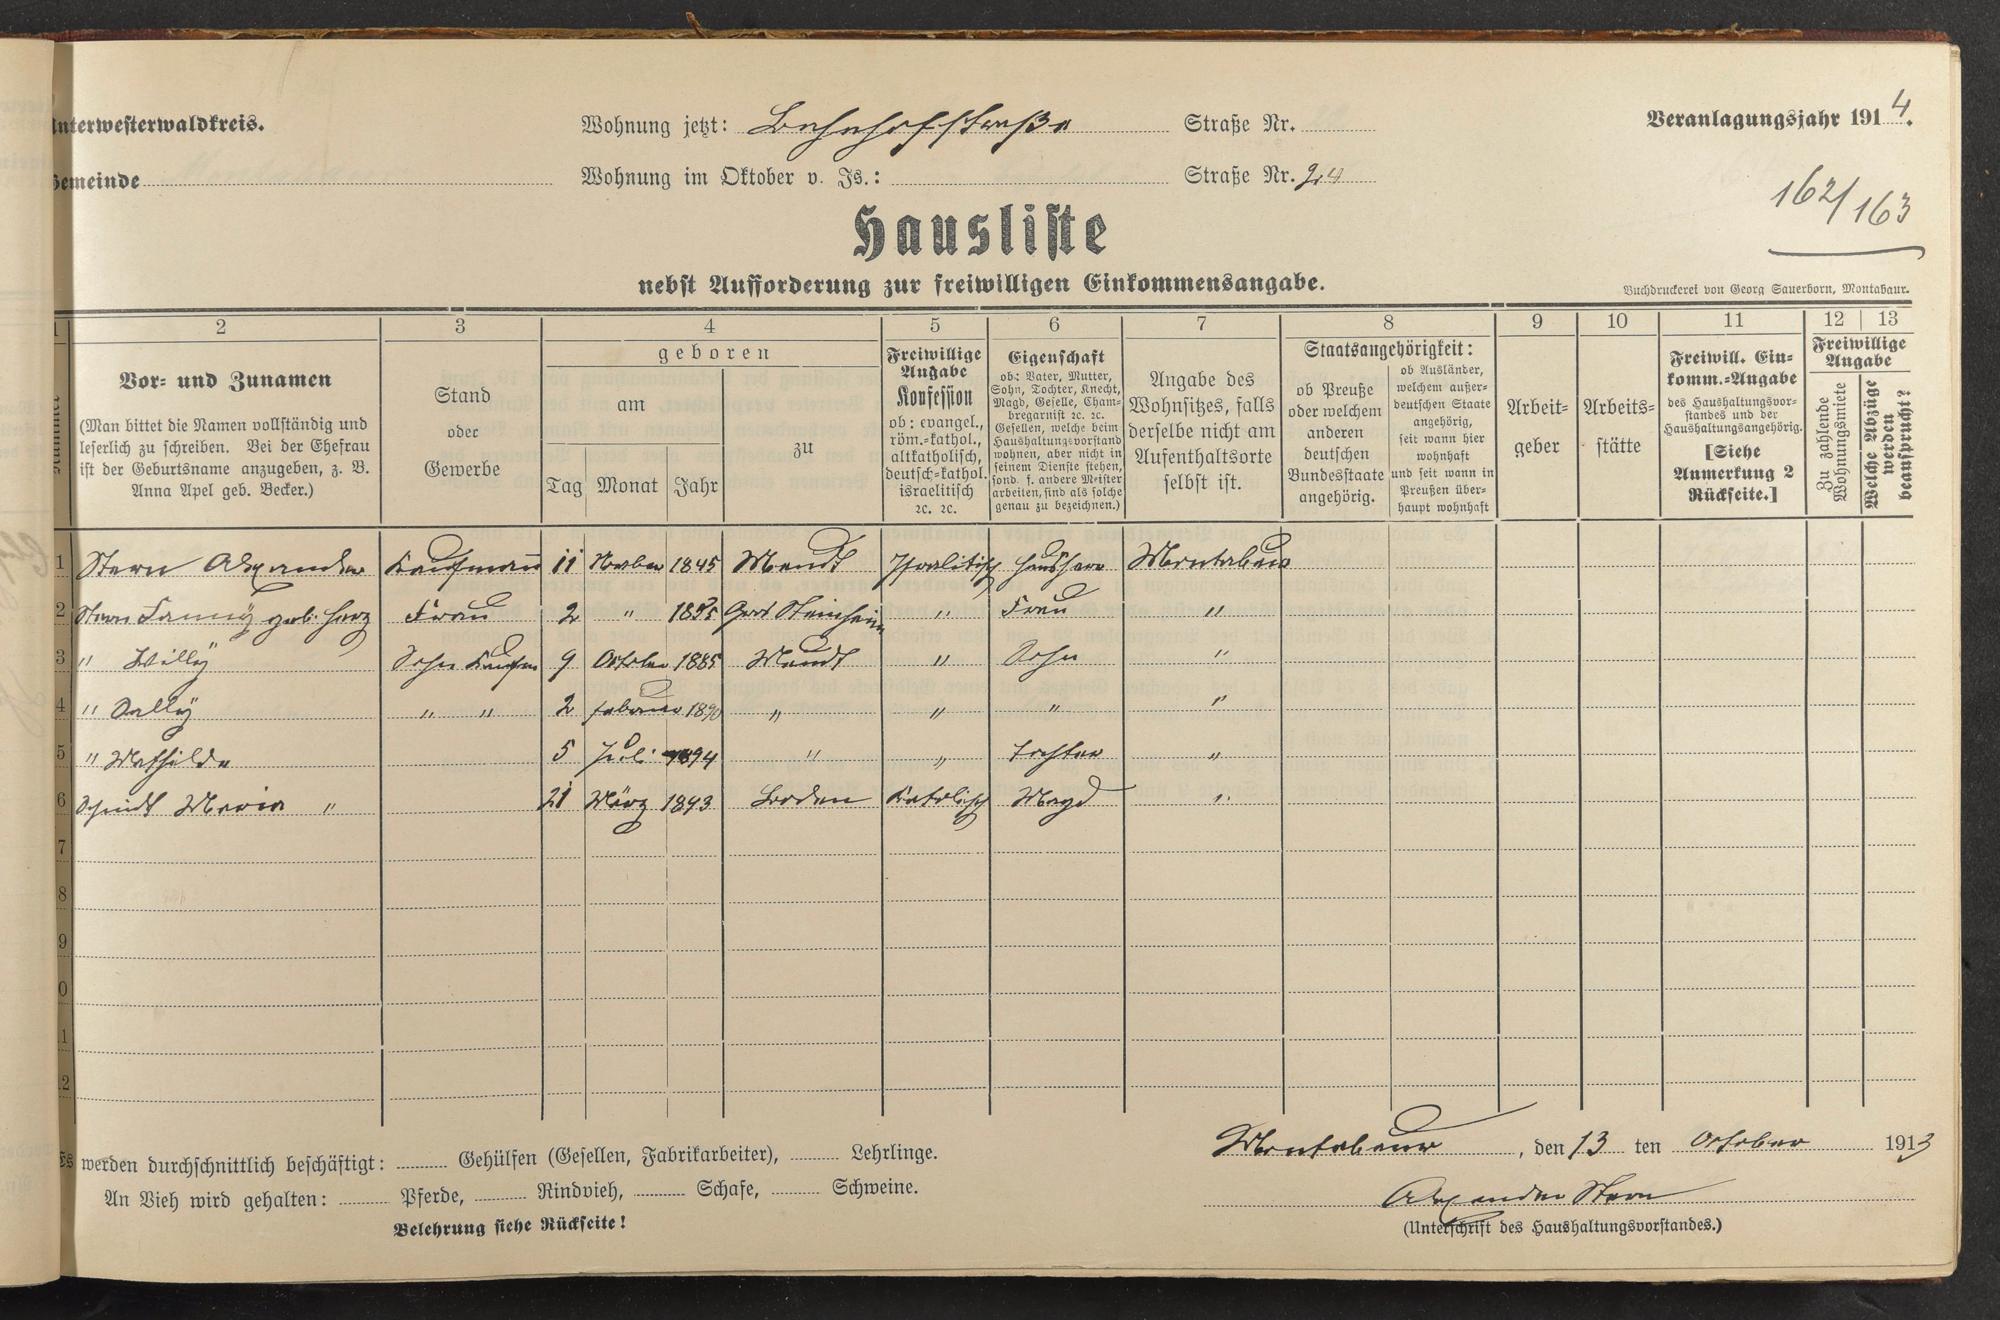 Unterwesterwaldkreis.
Wohnung jetzt: Bahnhofstraße Straße Nr.
Veranlagungsjahr 1914.
Gemeinde Montabaur
Wohnung im Oktober v. Js.: Straße Nr.
162/163
Hausliste
nebst Aufforderung zur freiwilligen Einkommensangabe.
Buchdruckerei von Georg Sauerborn, Montabaur.
1 2 3 4 5 6 7 8 9 10 11 12 13
Nummer
Vor- und Zunamen
(Man bittet die Namen vollständig und
leserlich zu schreiben. Bei der Ehefrau
ist der Geburtsname anzugeben, z. B.
Anna Apel geb. Becker.)
Stand
oder
Gewerbe
geboren
am
Tag Monat Jahr
zu
Freiwillige
Angabe
Konfession
ob: evangel.,
röm.-kathol.,
altkatholisch,
deutsch-kathol.
israelitisch
2c. 2c.
Eigenschaft
ob: Vater, Mutter,
Sohn, Tochter, Knecht,
Magd, Geselle, Cham-
bregarnist 2c. 2c.
Gesellen, welche beim
Haushaltungsvorstand
wohnen, aber nicht in
seinem Dienste stehen,
sond. f. andere Meister
arbeiten, sind als solche
genau zu bezeichnen.)
Angabe des
Wohnsitzes, falls
derselbe nicht am
Aufenthaltsorte
selbst ist.
Staatsangehörigkeit:
ob Preuße
oder welchem
anderen
deutschen
Bundesstaate
angehörig.
ob Ausländer,
welchem außer-
deutschen Staate
angehörig,
seit wann hier
wohnhaft
und seit wann in
Preußen über-
haupt wohnhaft
Arbeit-
geber
Arbeits-
stätte
Freiwill. Ein-
komm.-Angabe
des Haushaltungsvor-
standes und der
Haushaltungsangehörig.
[Siehe
Anmerkung 2
Rückseite.]
Freiwillige
Angabe
Zu zahlende
Wohnungsmiete
Welche Abzüge
werden
beansprucht?
1 Stern Alexander Kaufmann 11 Novber 1845 Meudt Israelitisch Hausherr Montabaur
2 Stern Fanny geb. Herz Frau 2 " Frau "
3 " Willy Sohn Kaufm 9 October 1885 Meudt " Sohn "
4 " Sally " " 2 Februar 1890 " " " "
5 " Mathilde 5 Juli 1894 " " Tochter "
6 Schmidt Maria " 21 März 1893 Boden Katolisch Magd "
7
8
9
10
11
12
Es werden durchschnittlich beschäftigt: Gehülfen (Gesellen, Fabrikarbeiter), Lehrlinge.
An Vieh wird gehalten: Pferde, Rindvieh, Schafe, Schweine.
Belehrung siehe Rückseite!
Montabaur, den 13 ten October 1913
Alexander Stern
(Unterschrift des Haushaltungsvorstandes.)